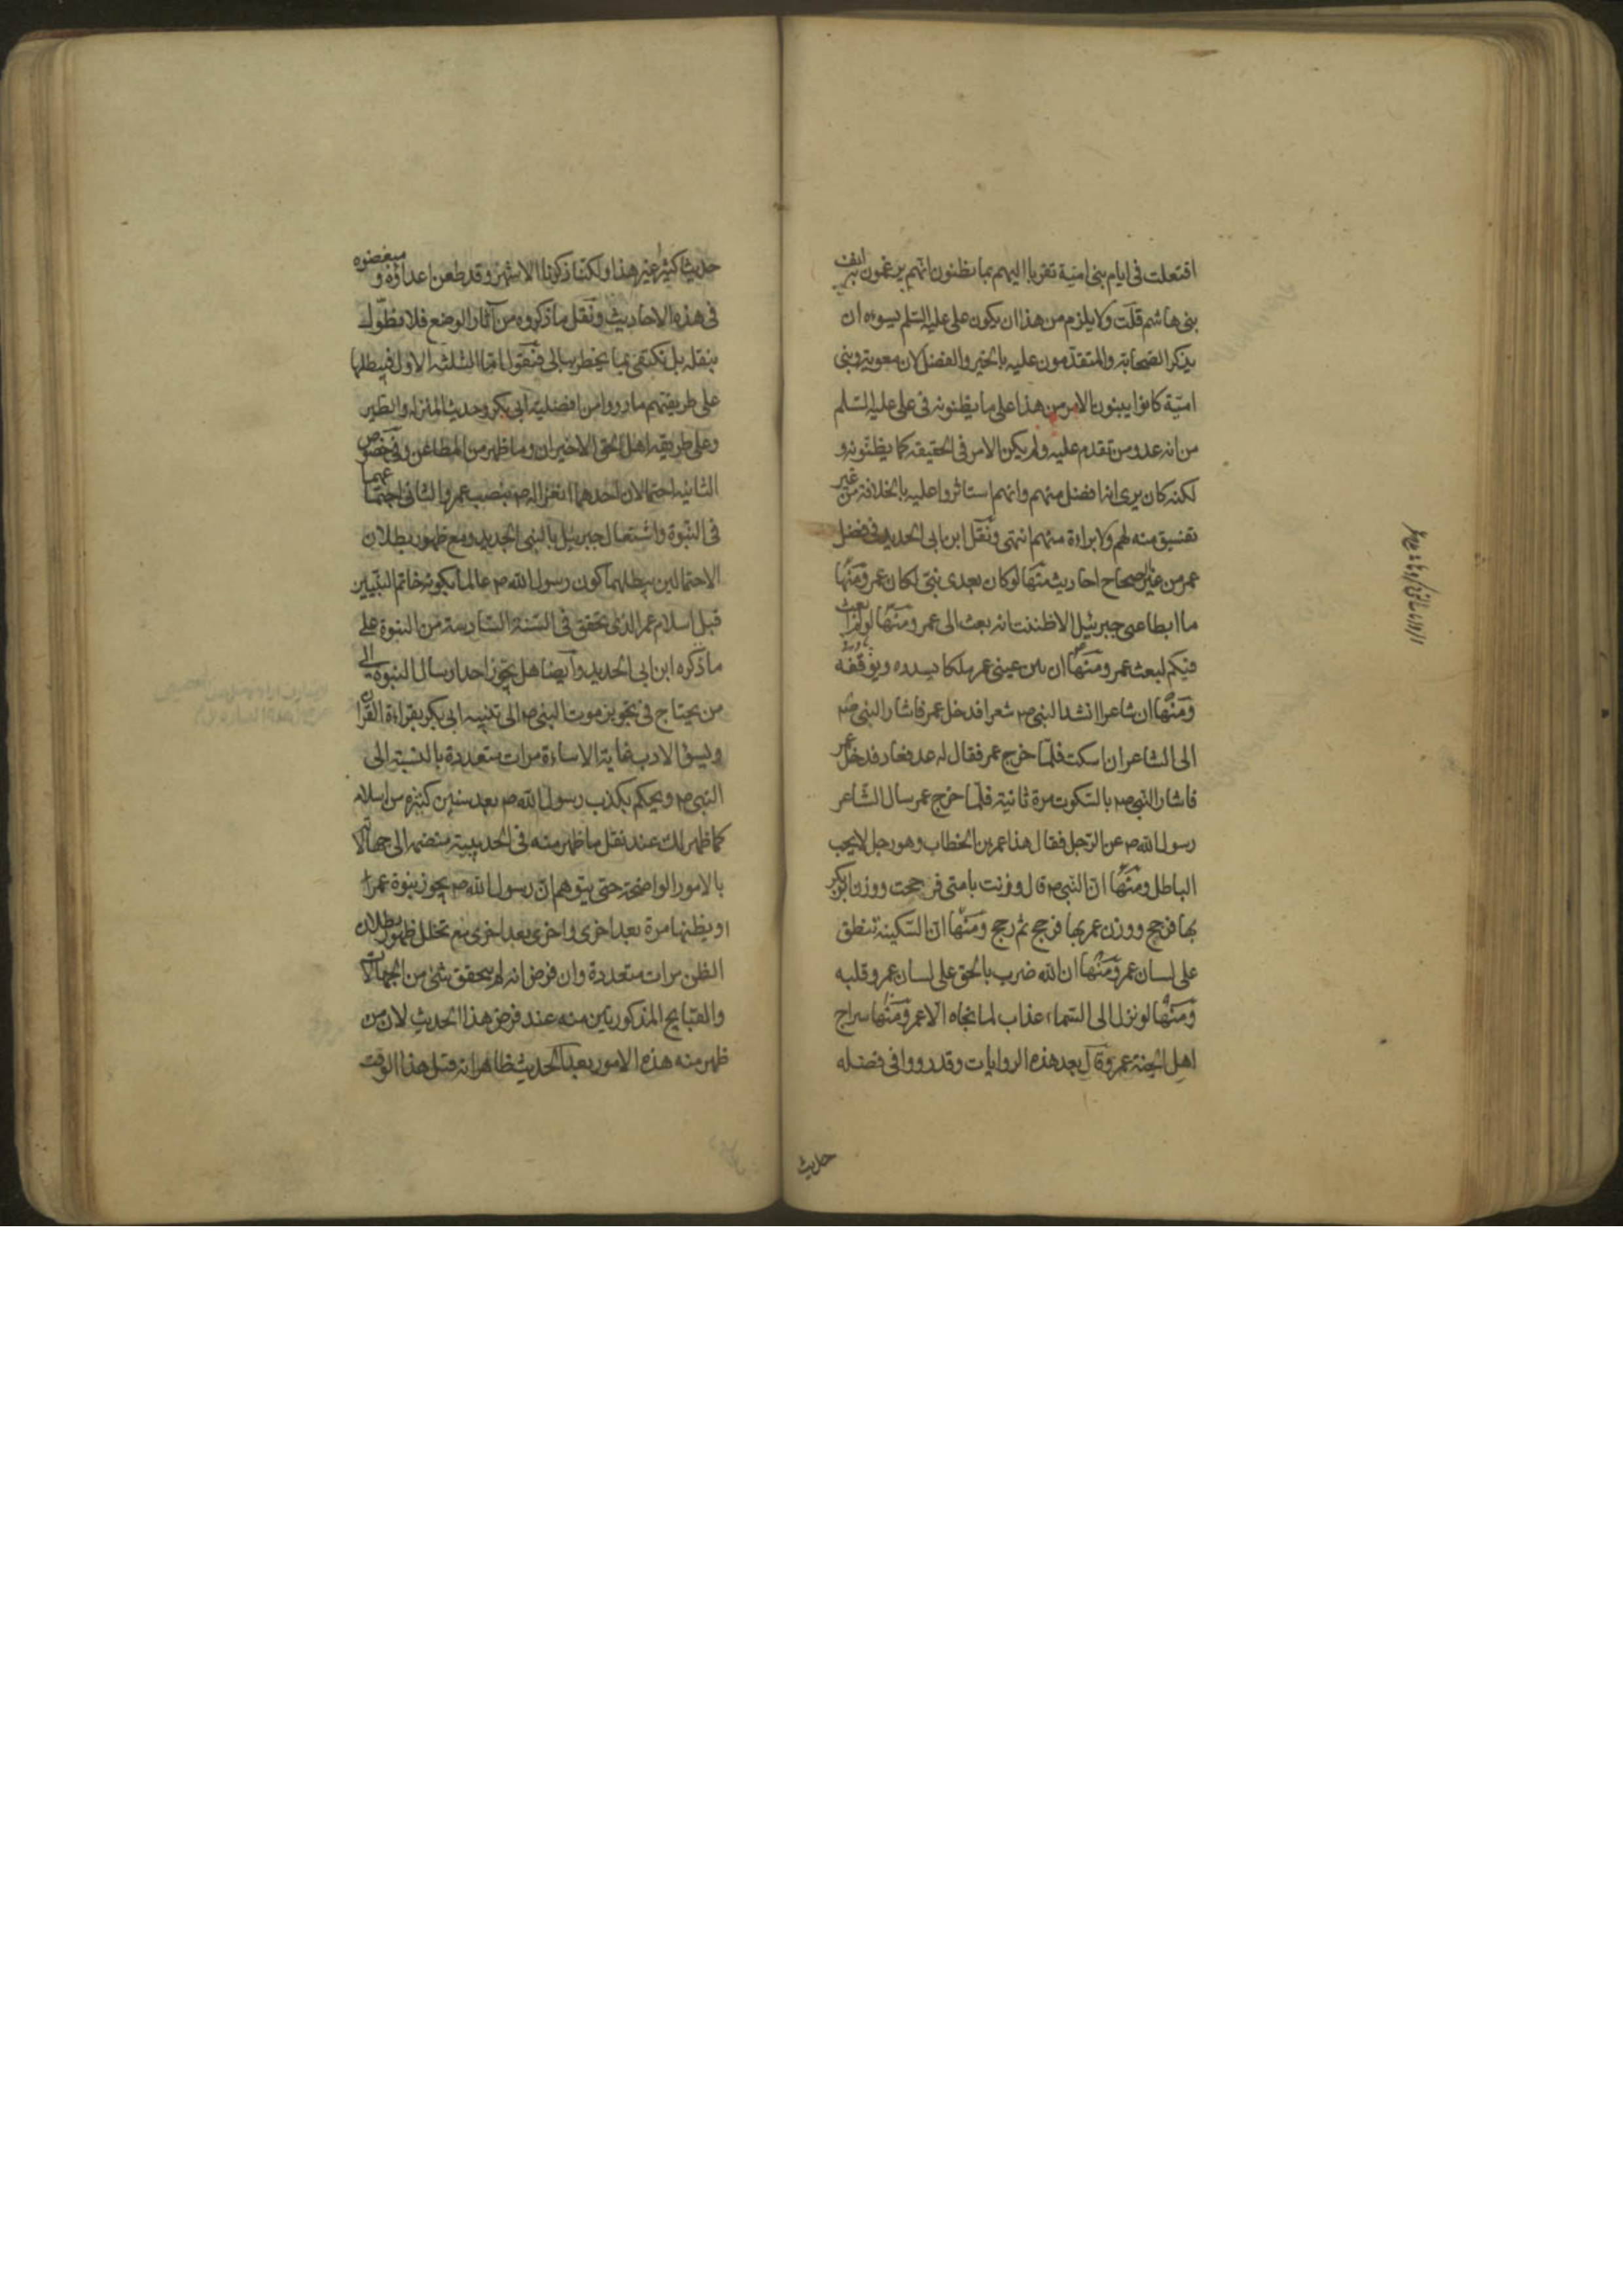 افتعلت فی ایام بنی امیة تقربا الیهم بما یظنون انهم یرغمون به انف
بنی هاشم قلت ولا یلزم من هذا ان یکون علی علیه السلم یسوءه ان
یذکر الصحابة والمتقدمون علیه بالخیر والفضل لان معویة وبنی
امیة کانوا یبنون الامر من هذا علی ما یظنونه فی علی علیه السلم
من انه عدو من تقدم علیه ولم یکن الامر فی الحقیقة کما یظنونه و
لکنه کان یری انه افضل منهم وانهم استاثروا علیه بالخلافة من غیر
تفسیق منه لهم ولا براءة منهم انتهی ونقل ابن ابی الحدید فی فضل
عمر من غیر الصحاح احادیث منها لو کان بعدی نبی لکان عمر ومنها
ما ابطا عنی جبرئیل الا ظننت انه بعث الی عمر ومنها لو لم ابعث
فیکم لبعث عمر ومنها ان بین عینی عمر ملکا یسدده ویوفقه
ومنها ان شاعرا انشد النبی ص شعرا فدخل عمر فاشار النبی ص
الی الشاعر ان اسکت فلما خرج عمر فقال له عد فعاد فدخل عمر
فاشار النبی ص بالسکوت مرة ثانیة فلما خرج عمر سال الشاعر
رسول الله ص عن الرجل فقال هذا عمر بن الخطاب وهو رجل لا یحب
الباطل ومنها ان النبی ص قال وزنت بامتی فرجحت ووزن ابوبکر
بها فرجح ووزن عمر بها فرجح ثم رجح ومنها ان السکینة تنطق
علی لسان عمر ومنها ان الله ضرب بالحق علی لسان عمر وقلبه
ومنها لو نزل الی السماء عذاب لما نجاه الا عمر ومنها سراج
اهل الجنة عمر وقال بعد هذه الروایات وقد رووا فی فضله
حدیث
حدیثا کثیرا غیر هذا ولکنا ذکرنا الاشهر وقد طعن اعداؤه و مبغضوه
فی هذه الاحادیث ونقل ما ذکروه من آثار الوضع فلا نطول
بنقله بل نکتفی بما یخطر ببالی فنقول اما الثلثة الاول فیبطلها
علی طریقتهم ما رووا من افضلیة ابی بکر وحدیث المنزلة والطیر
وعلی طریقة اهل الحق الاخیران وما ظهر من المطاعن وفی خصوص
الثانیة احتمالان احدهما انعزاله ص بنصب عمر والثانی اجتماعهما
فی النبوة واشتغال جبرئیل بالنبی الجدید ومع ظهور بطلان
الاحتمالین یبطلهما کون رسول الله ص عالما بکونه خاتم النبیین
قبل اسلام عمر الذی تحقق فی السنة السادسة من النبوة علی
ما ذکره ابن ابی الحدید وایضا هل یجوز احد ارسال النبوة الی
من یحتاج فی تجویز موت النبی ص الی تنبیه ابی بکر بقراءة القرآن
ویسیٔ الادب غایة الاساءة مرات متعددة بالنسبة الی
النبی ص ویحکم بکذب رسول الله ص بعد سنین کثیرة من اسلامه
کما ظهر لک عند نقل ما ظهر منه فی الحدیبیة منضما الی جهالاته
بالامور الواضحة حتی یتوهم ان رسول الله ص یجوز نبوة عمر
او یظنها مرة بعد اخری واخری بعد اخری مع تخلل ظهور بطلان
الظن مرات متعددة وان فرض انه لم یتحقق شیٔ من الجهالات
والقبایح المذکورتین منه عند فرض هذا الحدیث لان من
ظهر منه هذه الامور بعد الحدیث ظاهر انه قبل هذا الوقت